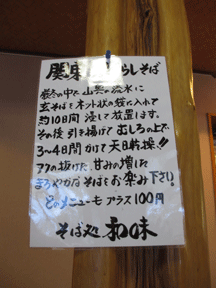 関東 らしそば
厳冬の中で山奥の流水に
玄そばをネット状の袋に入れて
約10日間 浸して放置します。
その後 引き揚げて むしろの上で
3〜4日間かけて天日乾燥!!
アクの抜けた、甘みの増した
まろやかなそばをお楽み下さい!
どのメニューも プラス100円
そば処 和味